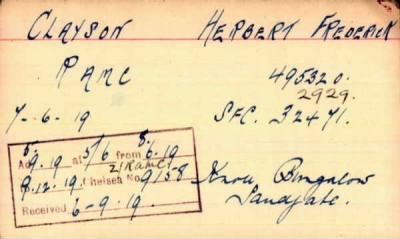 CLAYSON HERBERT FREDERICK
RAMC 495320.
2929.
7-6-19 SFC. 32471.
5.9.19 at 5/6 from 8.6.19
21 RAMC
9.12.19. Chelsea No. 9/58
Received 6-9.19.
Knoll Bungalow
Sandgate.